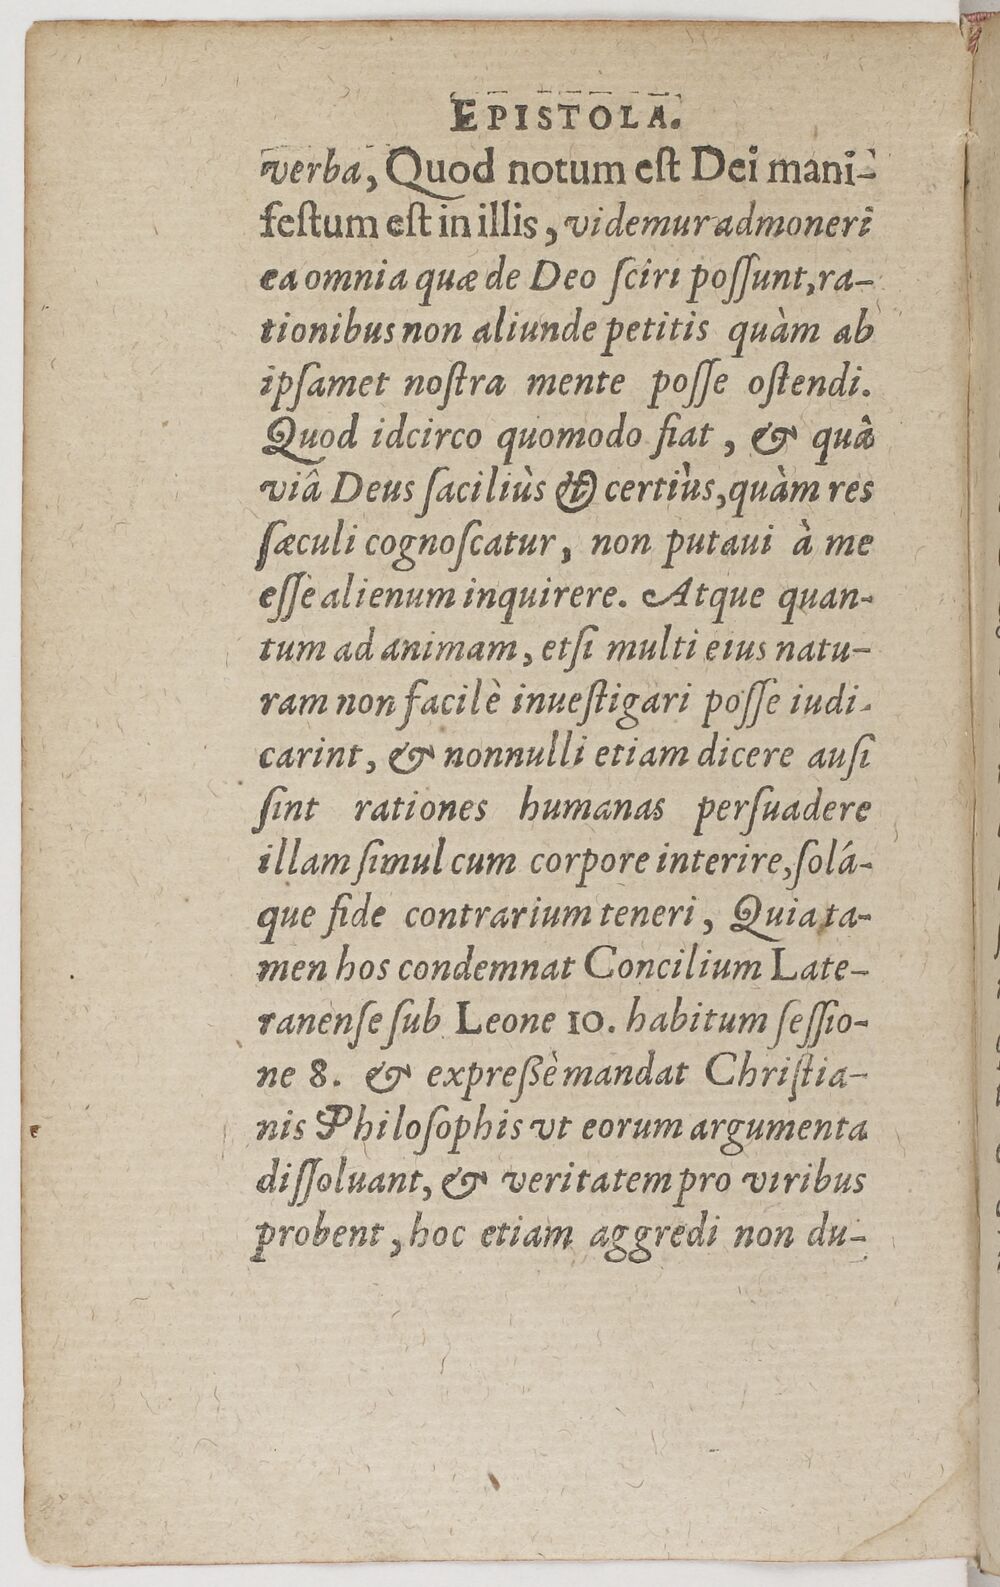 EPISTOLA.
verba, Quod notum eſt Dei mani-
feſtum eſt in illis, videmur admoneri
ea omnia quæ de Deo ſciri poſſunt, ra-
tionibus non aliunde petitis quàm ab
ipſamet noſtra mente poſſe oſtendi.
Quod idcirco quomodo fiat, & quâ
viâ Deus faciliùs & certiùs, quàm res
ſæculi cognoſcatur, non putaui à me
eſſe alienum inquirere. Atque quan-
tum ad animam, etſi multi eius natu-
ram non facilè inueſtigari poſſe iudi-
carint, & nonnulli etiam dicere auſi
ſint rationes humanas perſuadere
illam ſimul cum corpore interire, ſolá-
que fide contrarium teneri, Quia ta-
men hos condemnat Concilium Late-
ranenſe ſub Leone 10. habitum ſeſſio-
ne 8. & expreßè mandat Chriſtia-
nis Philoſophis vt eorum argumenta
diſſoluant, & veritatem pro viribus
probent, hoc etiam aggredi non du-